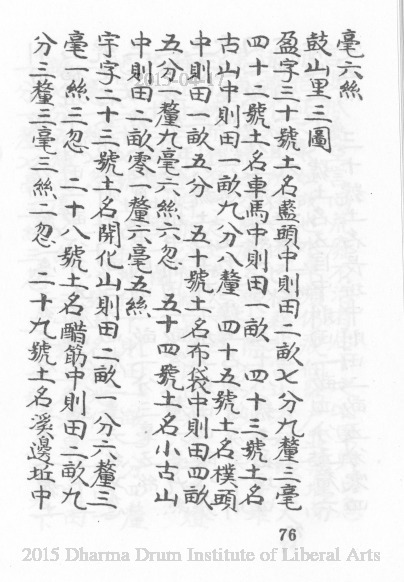 毫六絲
鼓山里三圖
盈字三十號土名藍頭中則田二畝七分九釐三毫
四十二號土名車馬中則田一畝 四十三號土名
古山中則田一畝九分八釐 四十五號土名樸頭
中則田一畝五分 五十號土名布袋中則田四畝
五分一釐九毫六絲六忽 五十四號土名小古山
中則田二畝零一釐六毫五絲
宇字二十三號土名開化山則田二畝一分六釐三
毫一絲三忽 二十八號土名醋筋中則田二畝九
分三釐三毫三絲二忽 二十九號土名溪邊坵中
76
2015 Dharma Drum Institute of Liberal Arts